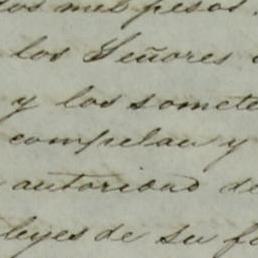 os mil pesos.
los Señores
y los somete
compelan y
autoridad de
leyes de su fo